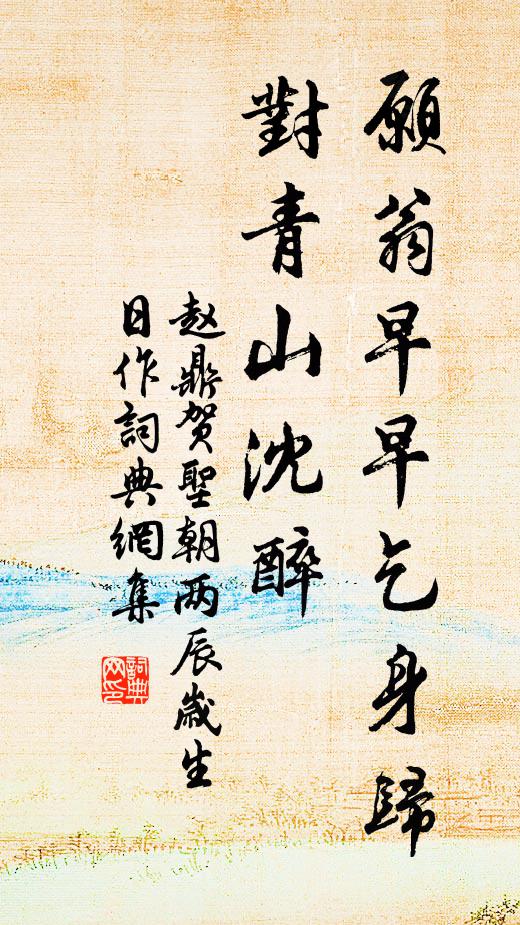 願翁早早乞身歸
對青山沈醉
赵鼎贺聖朝两辰歲生
日作詞典網集
詞典網印